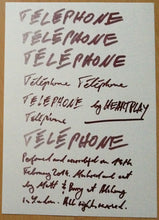 TÉLÉPHONE
TÉLÉPHONE
TÉLÉPHONE
Téléphone Téléphone
TÉLÉPHONE by HEARTPLAY
Téléphone
TÉLÉPHONE
Performed and recorded on 14th
February 2014. Mastered and cut
by Matt & at Alchemy
in London. All rights reserved.